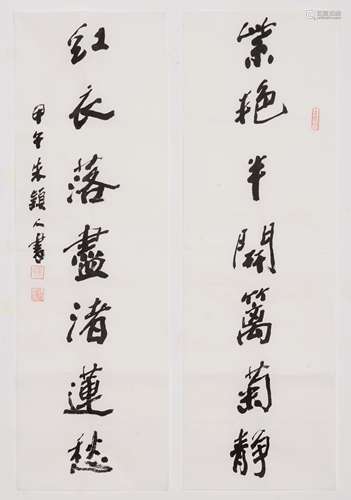 紫艳半開籬菊静
红衣落盡渚蓮愁
甲午朱穎人書